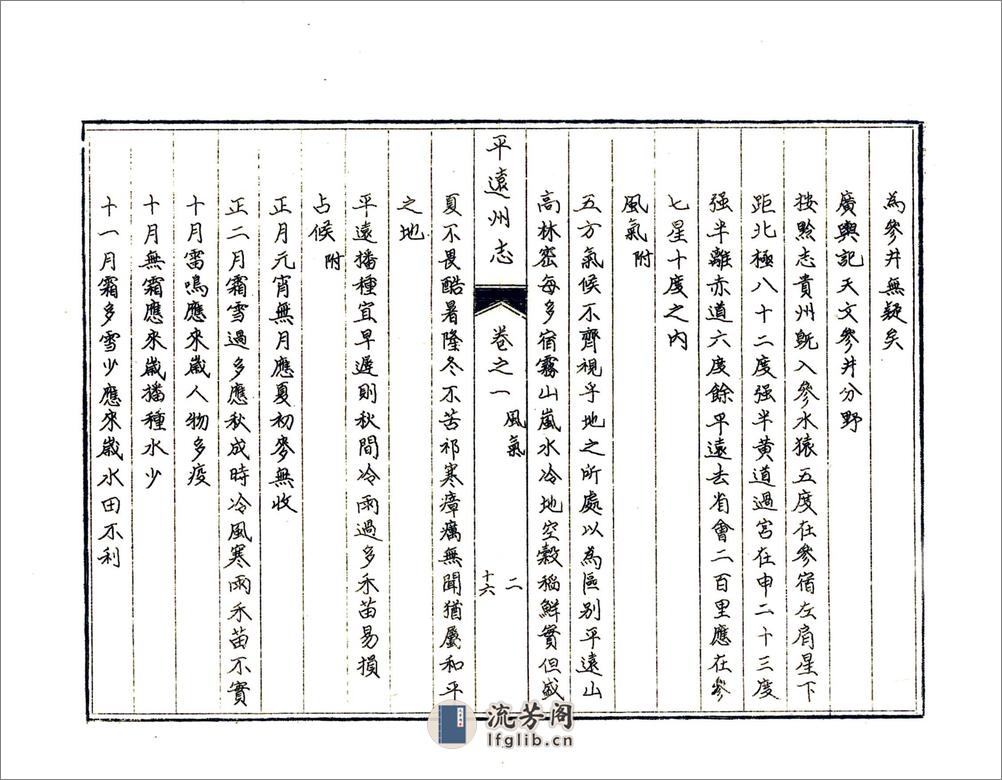 為參井無疑矣
廣輿記天文參井分野
按黔志貴州既入參水猿五度在參宿左肩星下
距北極八十二度强半黄道過宮在申二十三度
强半離赤道六度餘平遠去省會二百里應在參
七星十度之内
風氣附
五方氣候不齊視乎地之所處以為區别平遠山
高林密每多宿霧山嵐水冷地空穀稻鮮實但盛
平遠州志
卷之一 風氣
二
十六
夏不畏酷暑隆冬不苦祁寒瘴癘無聞猶屬和平
之地
平遠播種宜早遲則秋間冷雨過多禾苗易損
占候附
正月元宵無月應夏初麥無收
正二月霜雪過多應秋成時冷風寒雨禾苗不實
十月雷鳴應來歲人物多疫
十月無霜應來歲播種水少
十一月霜多雪少應來歲水田不利
流芳阁
lfglib.cn